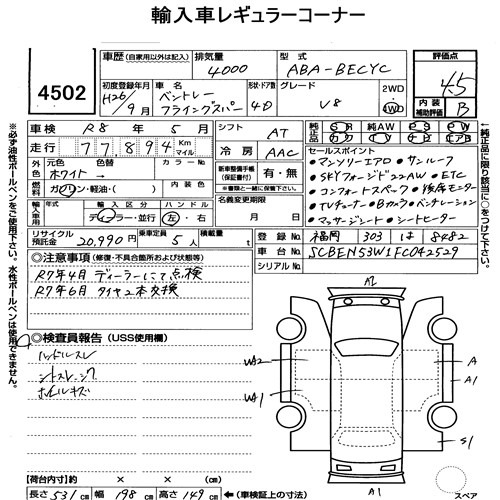 輸入車レギュラーコーナー
4502
車歴 (自家用以外は記入) 排気量 4000 型式 ABA-BECYC 評価点 4.5
初度登録年月 H26/9月 車名 ベントレー フライングスパー 形状・ドア数 4D グレード V8 2WD 4WD 内装補助評価 B
車検 R8年5月 シフト AT 純正品 SR 純AW PS PW
走行 77,894 Km マイル 冷房 AAC
外色 元色 ホワイト 色替 カラーNo. 新車整備手帳(保証書) 有・無
※書類一緒に保管して下さい
燃料 ガソリン・軽油・( ) 名義変更期限 月 日
輸入車用 輸入区分 ディーラー・並行 ハンドル 左・右
リサイクル預託金 20,990円 乗車定員 5人 積載量 t
セールスポイント
・マンソリーエアロ ・サンルーフ
・SKYフォージド22AW ・ETC
・コンフォートスペック ・後席モニター
・TVチューナー ・Bカメラ ・ベンチレーション
・マッサージシート ・シートヒーター
登録No. 福岡 303 は 8482
車台No. SCBEN53W1FC042529
シリアルNo.
◎注意事項 (修復・不具合箇所および状態等)
R7年4月 ディーラーにて点検
R7年6月 タイヤ2本交換
◎検査員報告 (USS使用欄)
ハンドルスレ
シートスレ・シワ
ホイールキズ
A2
WA2
A
A1
WA1
S1
A1
スペア
【荷台内寸】 × × (cm)
長さ 531 cm 幅 198 cm 高さ 149 cm ←(車検証上の寸法)
※必ず油性ボールペンをご使用下さい。水性ボールペンは使用できません。
(純正品に限り該当に○をして下さい)